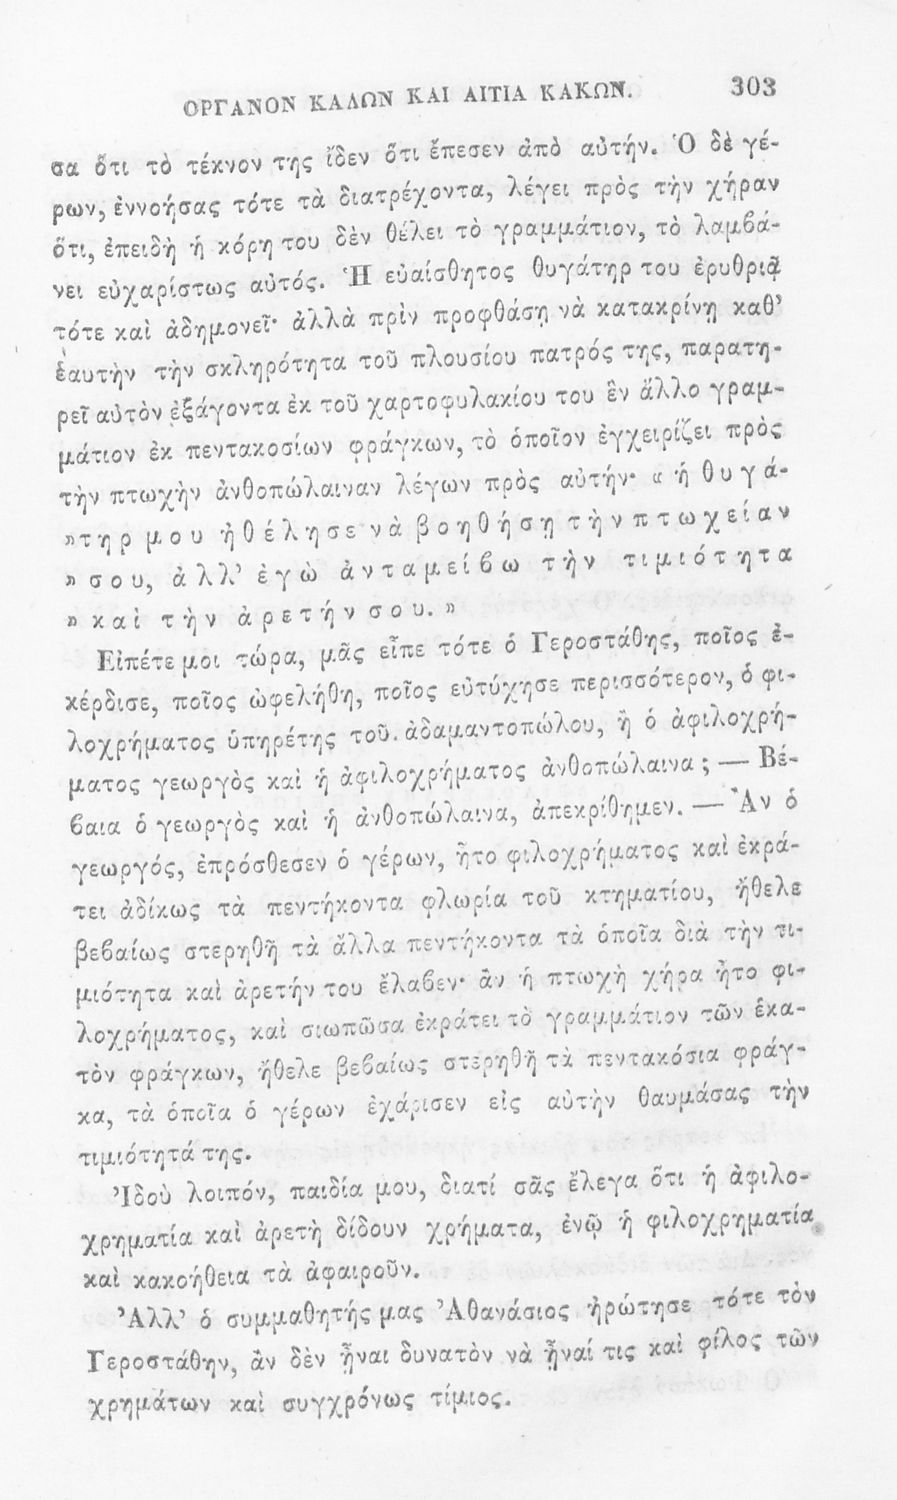 ΟΡΓΑΝΟΝ ΚΑΛΩΝ ΚΑΙ ΑΙΤΙΑ ΚΑΚΩΝ. 303
σα ὅτι τὸ τέκνον της ἴδεν ὅτι ἔπεσεν ἀπὸ αὐτήν. Ὁ δὲ γέ-
ρων, ἐννοήσας τότε τὰ διατρέχοντα, λέγει πρὸς τὴν χήραν
ὅτι, ἐπειδὴ ἡ κόρη του δὲν θέλει τὸ γραμμάτιον, τὸ λαμβά-
νει εὐχαρίστως αὐτός. Ἡ εὐαίσθητος θυγάτηρ του ἐρυθριᾷ
τότε καὶ ἀδημονεῖ· ἀλλὰ πρὶν προφθάσῃ νὰ κατακρίνῃ καθ’
ἑαυτὴν τὴν σκληρότητα τοῦ πλουσίου πατρός της, παρατη-
ρεῖ αὐτὸν ἐξάγοντα ἐκ τοῦ χαρτοφυλακίου του ἓν ἄλλο γραμ-
μάτιον ἐκ πεντακοσίων φράγκων, τὸ ὁποῖον ἐγχειρίζει πρὸς
τὴν πτωχὴν ἀνθοπώλαιναν λέγων πρὸς αὐτήν· « ἡ θυγά-
»τηρ μου ἠθέλησε νὰ βοηθήσῃ τὴν πτωχείαν
» σου, ἀλλ’ ἐγὼ ἀνταμείβω τὴν τιμιότητα
» καὶ τὴν ἀρετήν σου. »
Εἰπέτε μοι τώρα, μᾶς εἶπε τότε ὁ Γεροστάθης, ποῖος ἐ-
κέρδισε, ποῖος ὠφελήθη, ποῖος εὐτύχησε περισσότερον, ὁ φι-
λοχρήματος ὑπηρέτης τοῦ ἀδαμαντοπώλου, ἢ ὁ ἀφιλοχρή-
ματος γεωργὸς καὶ ἡ ἀφιλοχρήματος ἀνθοπώλαινα; — Βέ-
βαια ὁ γεωργὸς καὶ ἡ ἀνθοπώλαινα, ἀπεκρίθημεν. — Ἂν ὁ
γεωργός, ἐπρόσθεσεν ὁ γέρων, ἦτο φιλοχρήματος καὶ ἐκρά-
τει ἀδίκως τὰ πεντήκοντα φλωρία τοῦ κτηματίου, ἤθελε
βεβαίως στερηθῆ τὰ ἄλλα πεντήκοντα τὰ ὁποῖα διὰ τὴν τι-
μιότητα καὶ ἀρετήν του ἔλαβεν· ἂν ἡ πτωχὴ χήρα ἦτο φι-
λοχρήματος, καὶ σιωπῶσα ἐκράτει τὸ γραμμάτιον τῶν ἑκα-
τὸν φράγκων, ἤθελε βεβαίως στερηθῆ τὰ πεντακόσια φράγ-
κα, τὰ ὁποῖα ὁ γέρων ἐχάρισεν εἰς αὐτὴν θαυμάσας τὴν
τιμιότητά της.
Ἰδοὺ λοιπόν, παιδία μου, διατί σᾶς ἔλεγα ὅτι ἡ ἀφιλο-
χρηματία καὶ ἀρετὴ δίδουν χρήματα, ἐνῷ ἡ φιλοχρηματία
καὶ κακοήθεια τὰ ἀφαιροῦν.
Ἀλλ’ ὁ συμμαθητής μας Ἀθανάσιος ἠρώτησε τότε τὸν
Γεροστάθην, ἂν δὲν ἦναι δυνατὸν νὰ ἦναί τις καὶ φίλος τῶν
χρημάτων καὶ συγχρόνως τίμιος.